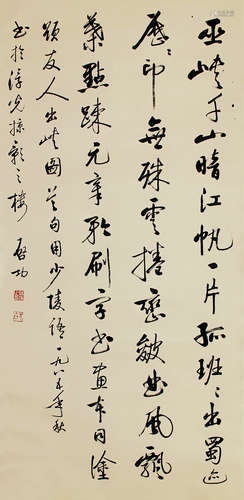 巫峽千山暗江帆一片孤班班出蜀迹
歷歷印無殊雲捲巒皴出風飄
葉點疎元章刷字書畫本同塗
題友人出峽圖首句用少陵語一九八年秋
書於浮光掠影之樓 啟功